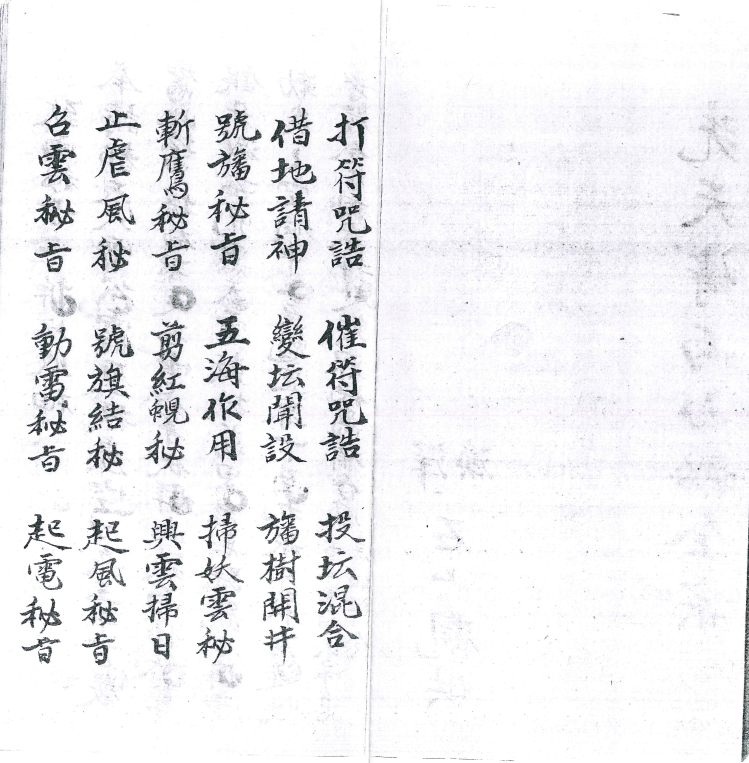 打符咒誥 催符咒誥 投坛混合
借地請神 變坛開設 旛樹開井
號旛秘旨 五海作用 掃妖雲秘
斬鷹秘旨 剪紅蜺秘 興雲掃日
止虐風秘 號旗結秘 起風秘旨
召雲秘旨 動雷秘旨 起電秘旨